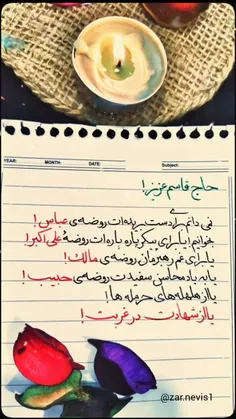 YEAR: MONTH: DATE: Subject:
حاج قاسم عزیز!
نمی دانم برای دست بریده ات روضه ی عباس!
بخوانیم! یا برای پیکر پاره پاره ات روضهٔ علی اکبر!
یا برای غم رهبرمان روضه ی مالک!
یا به یاد محاسن سفیدت روضه ی حبیب!
یا از هلهله های حرمله ها!
یا از شهادت در غربت!
@zar.nevis1